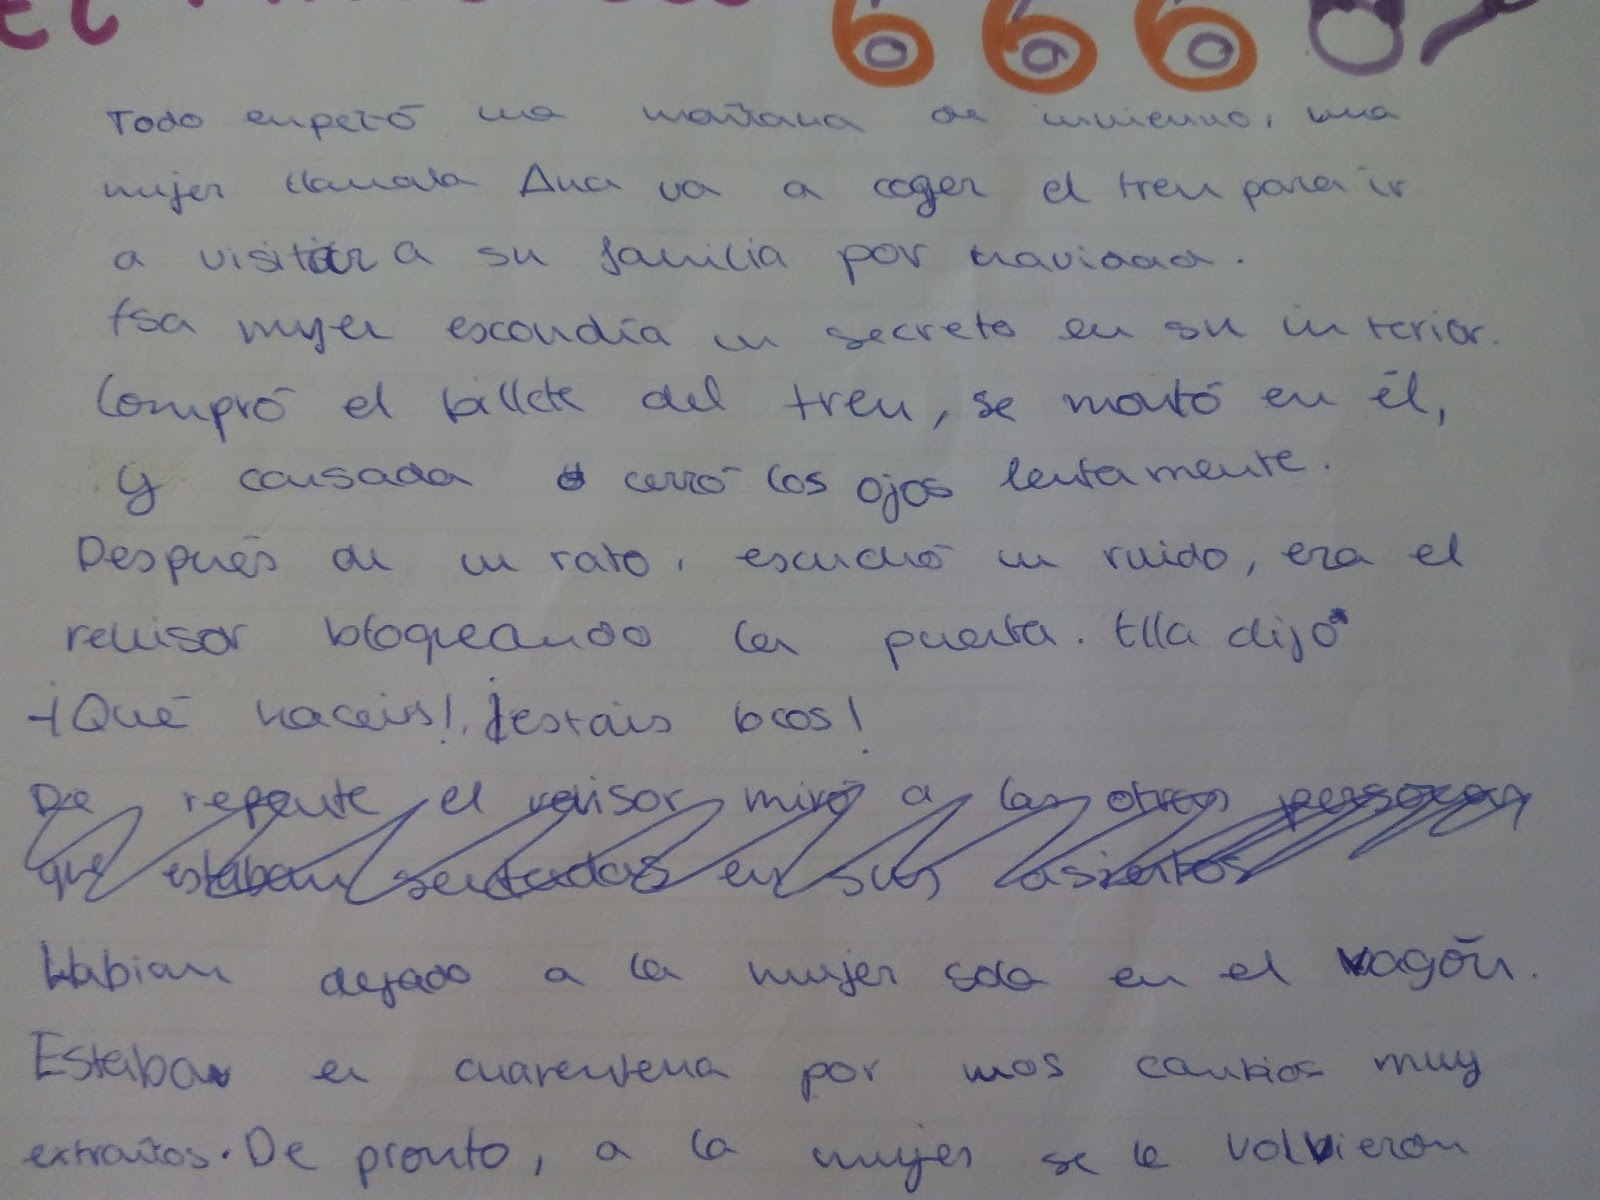 El 666
Todo empezó una mañana de invierno, una
mujer llamada Ana va a coger el tren para ir
a visitar a su familia por navidad.
Esa mujer escondía un secreto en su interior.
Compró el billete del tren, se montó en él,
y cansada cerró los ojos lentamente.
Después de un rato, escuchó un ruido, era el
revisor bloqueando la puerta. Ella dijo
-¡Qué haceis!, ¡estáis locos!
De repente el revisor miró a las otras personas
que estaban sentadas en sus asientos
Habian dejado a la mujer sola en el vagón.
Estaban en cuarentena por unos cambios muy
extraños. De pronto, a la mujer se le volvieron